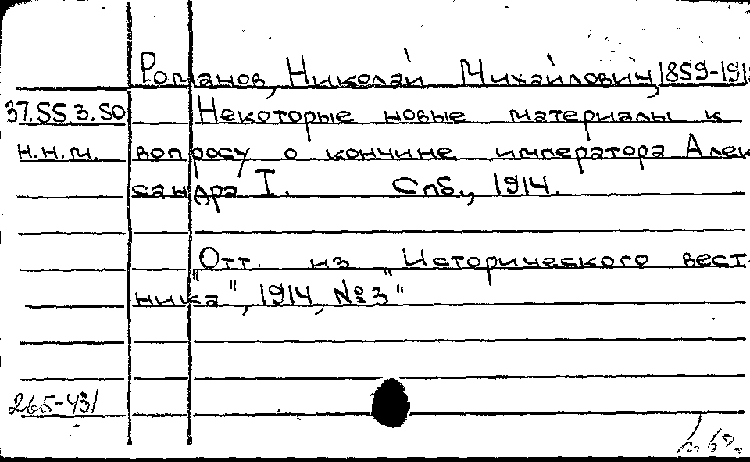 Романов, Николай Михайлович, 1859-191
37.55.3.50 Некоторые новые материалы к
н.н.м. вопросу о кончине императора Алек
сандра I. Спб., 1914.
"Отт. из "Исторического вест
ника", 1914, №3"
265-431